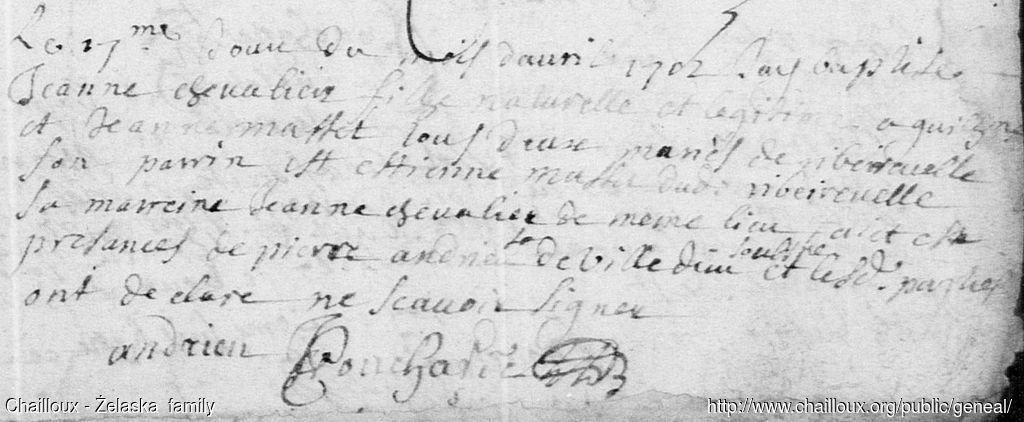 Le 17me Jour du mois d'avril 1702 Jay baptisé
Jeanne chevalier fille naturelle et legitime a
et Jeanne masset tous deux mariés de ribeirevelle
son parrin est ettienne masset dud. ribeirevelle
sa marreine Jeanne chevalier de meme lieu en
presances de pierre andrien de ville dieu et lesd. parties
ont declare ne scavoir signer
andrien
Chailloux - Żelaska family
http://www.chailloux.org/public/geneal/